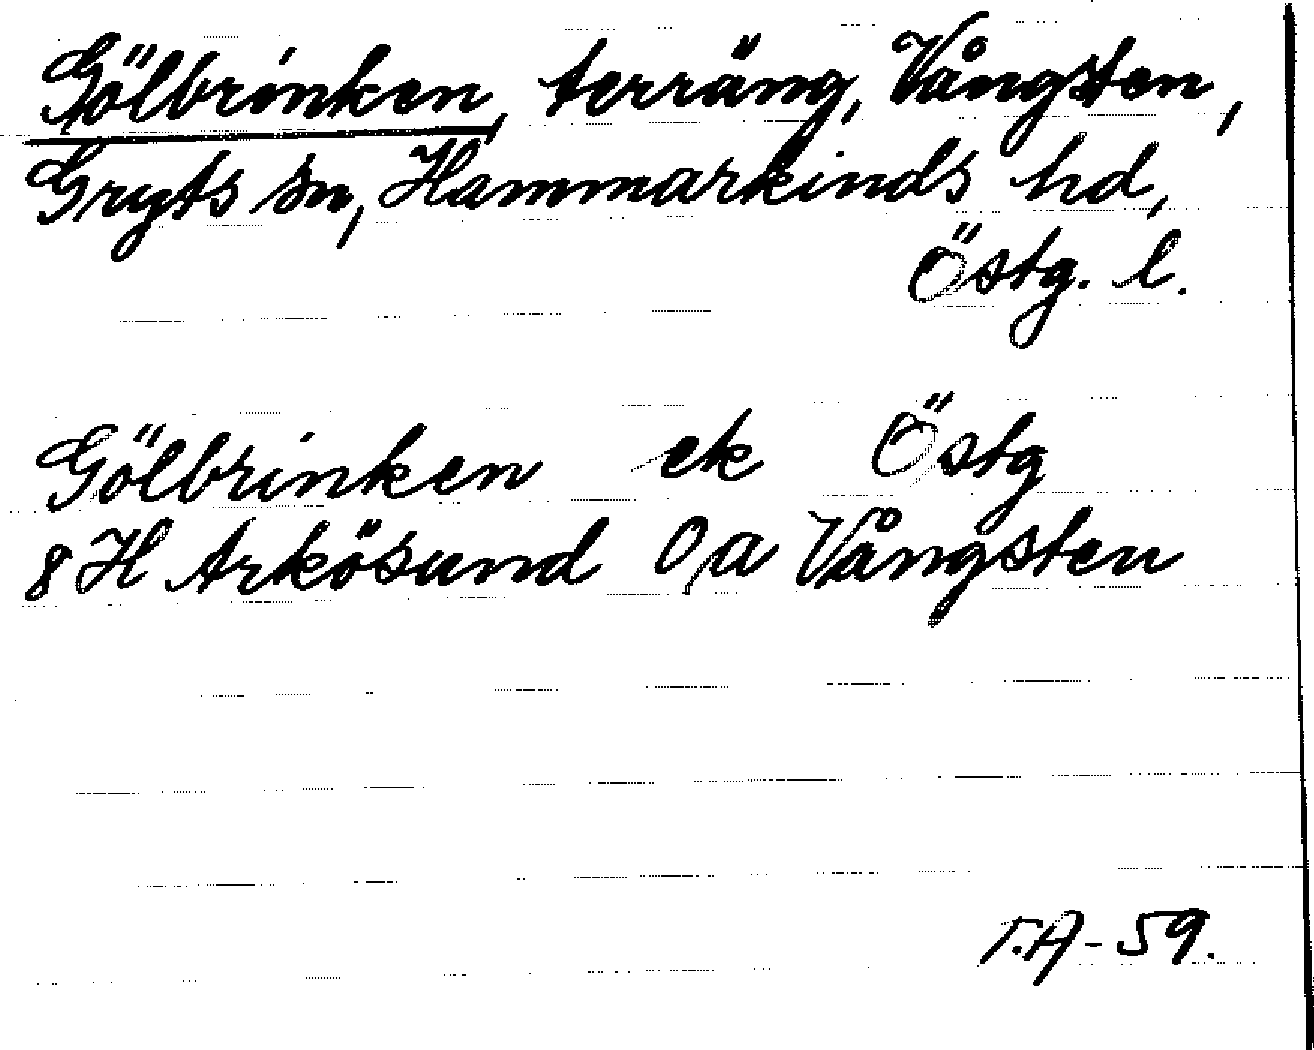 Gölbrinken, terräng, Vångsten,
Gryts sn, Hammarkinds hd,
Östg. l.
Gölbrinken ek Östg
8 H Arkösund O, a Vångsten
T.A-59.